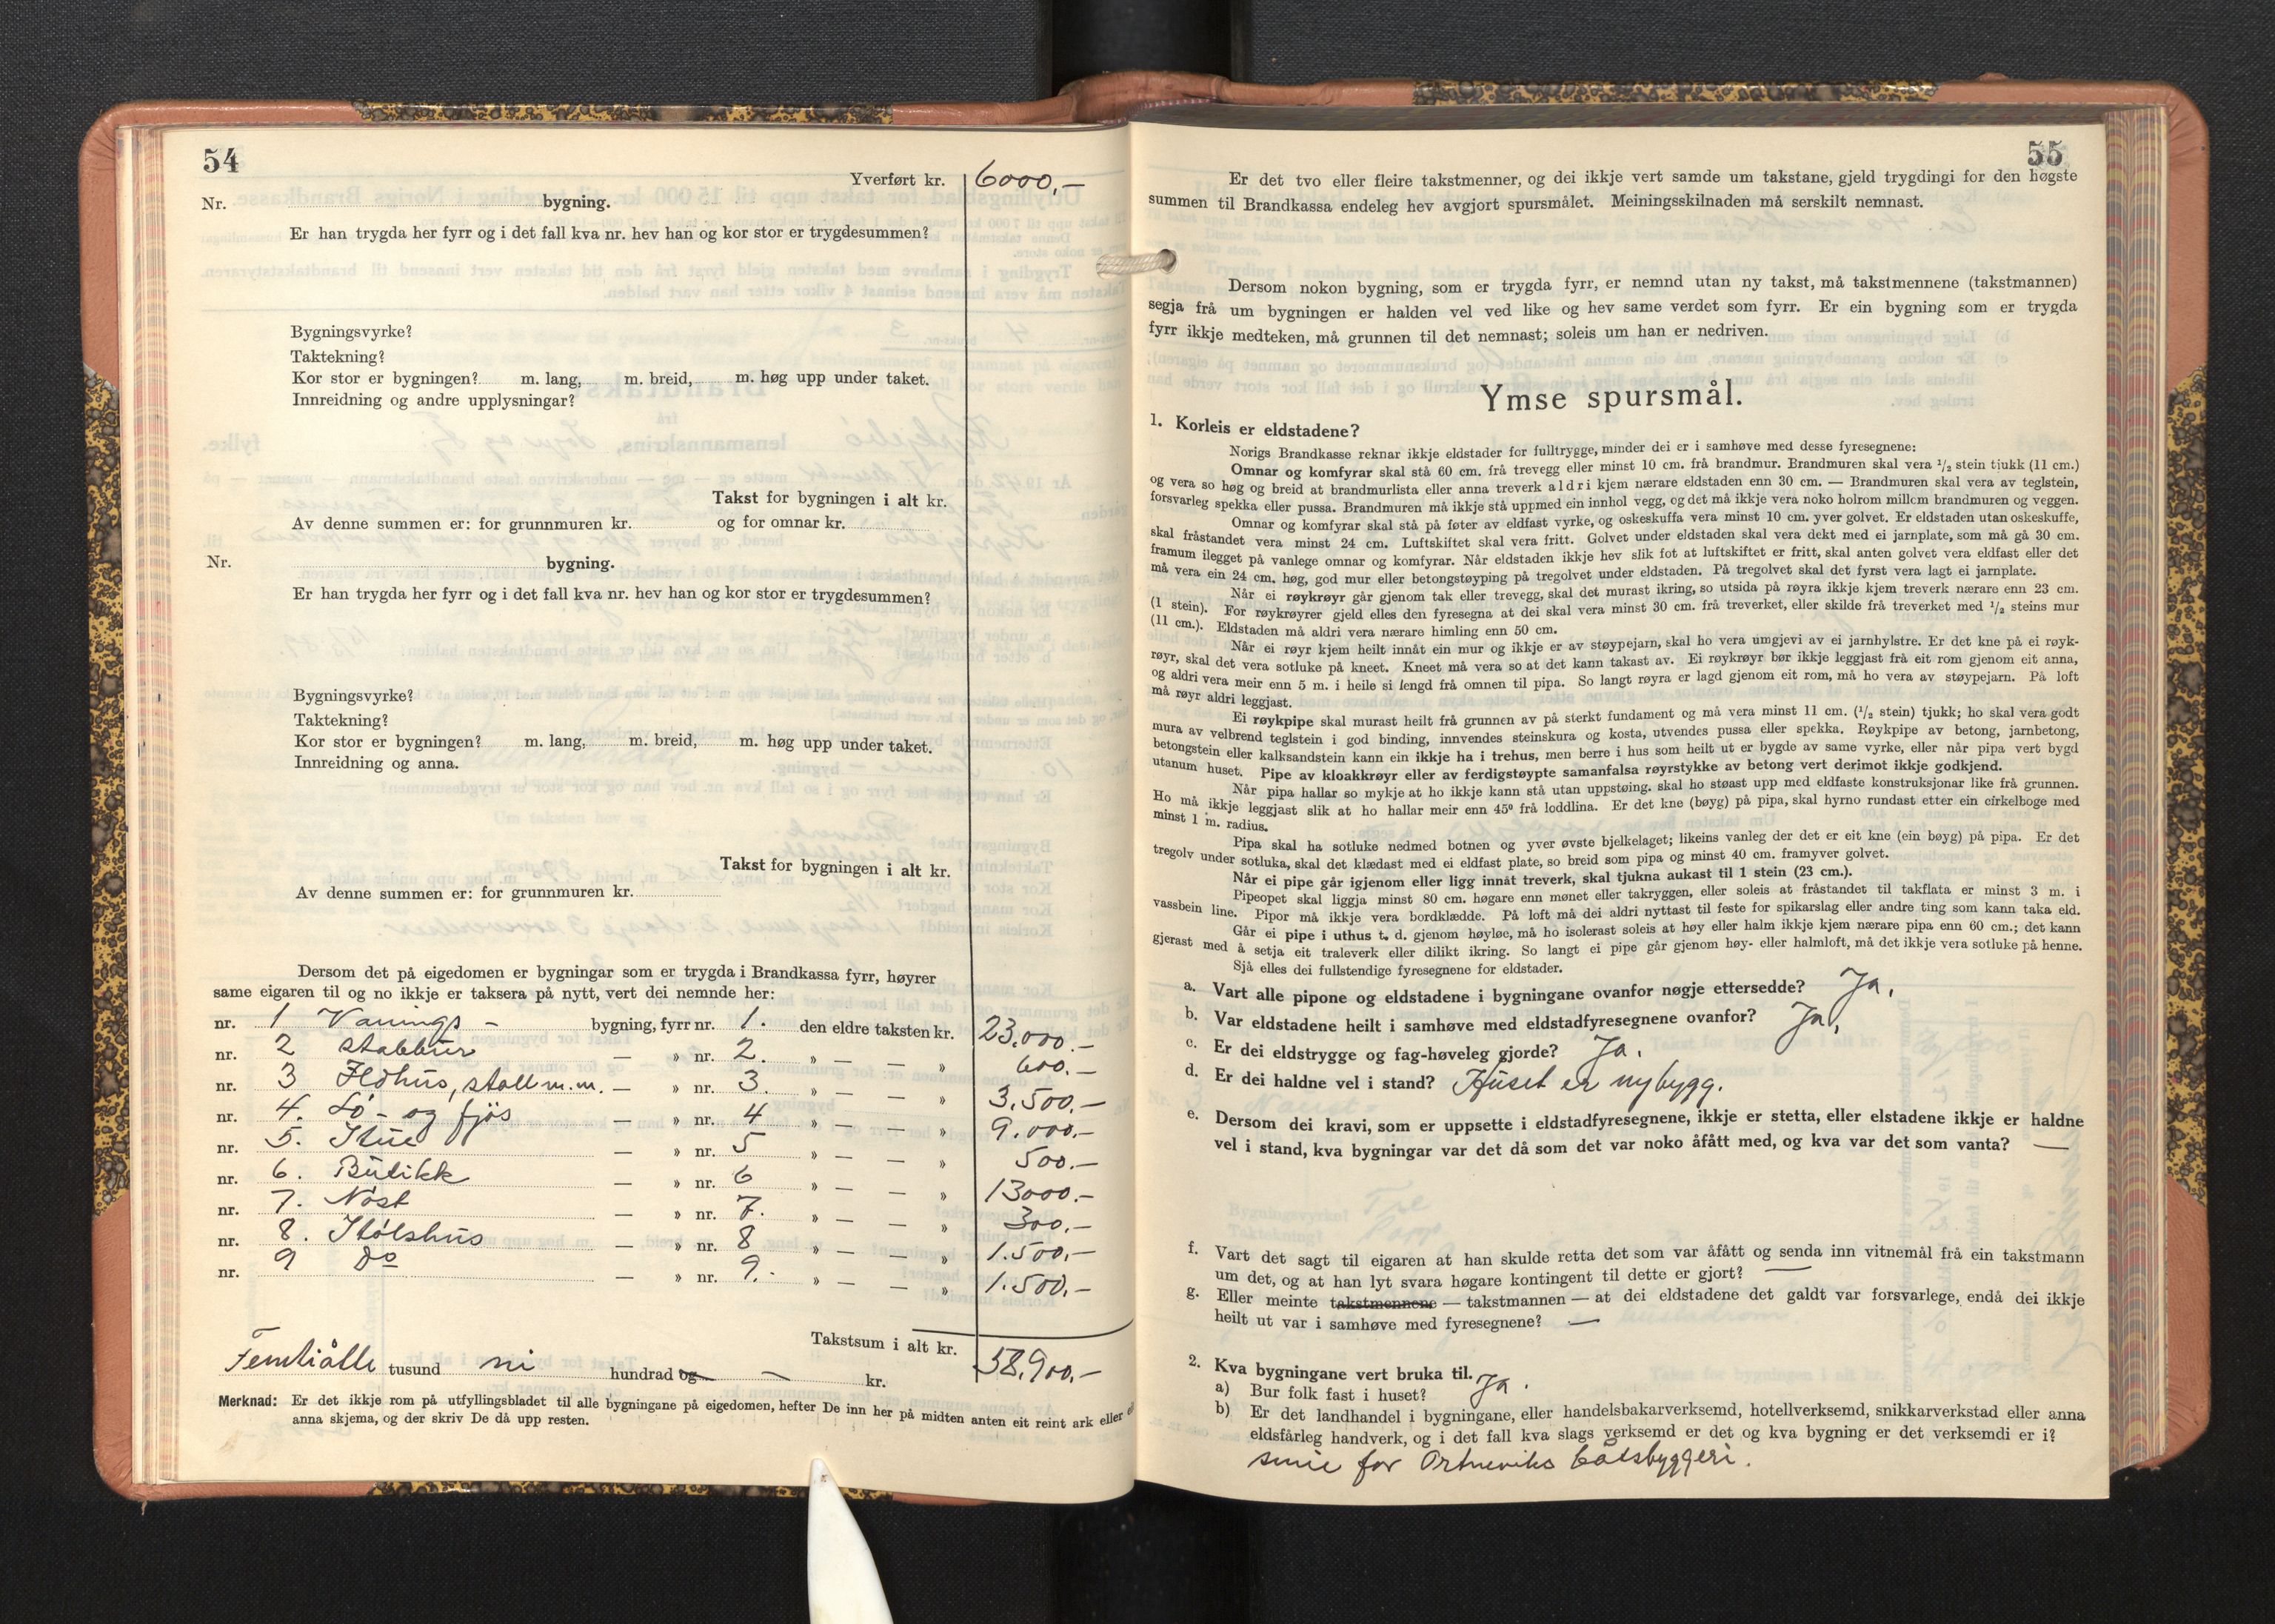 54
Yverført kr. 6000,-
Nr. bygning.
Er han trygda her fyrr og i det fall kva nr. hev han og kor stor er trygdesummen?
Bygningsvyrke?
Taktekning?
Kor stor er bygningen? m. lang, m. breid, m. høg upp under taket.
Innreidning og andre upplysningar?
Takst for bygningen i alt kr.
Av denne summen er: for grunnmuren kr. og for omnar kr.
Nr. bygning.
Er han trygda her fyrr og i det fall kva nr. hev han og kor stor er trygdesummen?
Bygningsvyrke?
Taktekning?
Kor stor er bygningen? m. lang, m. breid, m. høg upp under taket.
Innreidning og anna.
Takst for bygningen i alt kr.
Av denne summen er: for grunnmuren kr.
Dersom det på eigedomen er bygningar som er trygda i Brandkassa fyrr, høyrer
same eigaren til og no ikkje er taksera på nytt, vert dei nemnde her:
nr. 1 Vanings- bygning, fyrr nr. 1. den eldre taksten kr. 23.000.-
nr. 2 stabbur — » nr. 2. » — — » 600.-
nr. 3 Ildhus, stall m.m. — » nr. 3. » — — » 3.500,-
nr. 4. Lö- og fjøs — » nr. 4 » — — » 9.000,-
nr. 5. Stue — » nr. 5 » — — » 500.-
nr. 6. Butikk — » nr. 6 » — — » 13000.-
nr. 7. Nöst — » nr. 7. » — — » 300,-
nr. 8. Stölshus — » nr. 8 » — — » 1.500,-
nr. 9 do — » nr. 9. » — — » 1.500,-
Takstsum i alt kr. 58.900,-
Femtiåtte tusund ni hundrad og — kr.
Merknad: Er det ikkje rom på utfyllingsbladet til alle bygningane på eigedomen, hefter De inn her på midten anten eit reint ark eller
anna skjema, og der skriv De då upp resten.
55
Er det tvo eller fleire takstmenner, og dei ikkje vert samde um takstane, gjeld trygdingi for den høgste
summen til Brandkassa endeleg hev avgjort spursmålet. Meiningsskilnaden må serskilt nemnast.
Dersom nokon bygning, som er trygda fyrr, er nemnd utan ny takst, må takstmennene (takstmannen)
segja frå um bygningen er halden vel ved like og hev same verdet som fyrr. Er ein bygning som er trygda
fyrr ikkje medteken, må grunnen til det nemnast; soleis um han er nedriven.
Ymse spursmål.
1. Korleis er eldstadene?
Norigs Brandkasse reknar ikkje eldstader for fulltrygge, minder dei er i samhøve med desse fyresegnene:
Omnar og komfyrar skal stå 60 cm. frå trevegg eller minst 10 cm. frå brandmur. Brandmuren skal vera 1/2 stein tjukk (11 cm.)
og vera so høg og breid at brandmurlista eller anna treverk aldri kjem nærare eldstaden enn 30 cm. — Brandmuren skal vera av teglstein,
forsvarleg spekka eller pussa. Brandmuren må ikkje stå uppmed ein innhol vegg, og det må ikkje vera noko holrom millom brandmuren og veggen.
Omnar og komfyrar skal stå på føter av eldfast vyrke, og oskeskuffa vera minst 10 cm. yver golvet. Er eldstaden utan oskeskuffe,
skal fråstandet vera minst 24 cm. Luftskiftet skal vera fritt. Golvet under eldstaden skal vera dekt med ei jarnplate, som må gå 30 cm.
framum ilegget på vanlege omnar og komfyrar. Når eldstaden ikkje hev slik fot at luftskiftet er fritt, skal anten golvet vera eldfast eller det
må vera ein 24 cm. høg, god mur eller betongstøyping på tregolvet under eldstaden. På tregolvet skal det fyrst vera lagt ei jarnplate.
Når ei røykrøyr går gjenom tak eller trevegg, skal det murast ikring, so utsida på røyra ikkje kjem treverk nærare enn 23 cm.
(1 stein). For røykrøyrer gjeld elles den fyresegna at dei skal vera minst 30 cm. frå treverket, eller skilde frå treverket med 1/2 steins mur
(11 cm.). Eldstaden må aldri vera nærare himling enn 50 cm.
Når ei røyr kjem heilt innåt ein mur og ikkje er av støypejarn, skal ho vera umgjevi av ei jarnhylstre. Er det kne på ei røyk-
røyr, skal det vera sotluke på kneet. Kneet må vera so at det kann takast av. Ei røykrøyr bør ikkje leggjast frå eit rom gjenom eit anna,
og aldri vera meir enn 5 m. i heile si lengd frå omnen til pipa. So langt røyra er lagd gjenom eit rom, må ho vera av støypejarn. På loft
må røyr aldri leggjast.
Ei røykpipe skal murast heilt frå grunnen av på sterkt fundament og må vera minst 11 cm. (1/2 stein) tjukk; ho skal vera godt
mura av velbrend teglstein i god binding, innvendes steinskura og kosta, utvendes pussa eller spekka. Røykpipe av betong, jarnbetong,
betongstein eller kalksandstein kann ein ikkje ha i trehus, men berre i hus som heilt ut er bygde av same vyrke, eller når pipa vert bygd
utanum huset. Pipe av kloakkrøyr eller av ferdigstøypte samanfalsa røyrstykke av betong vert derimot ikkje godkjend.
Når pipa hallar so mykje at ho ikkje kann stå utan uppstøing. skal ho støast upp med eldfaste konstruksjonar like frå grunnen.
Ho må ikkje leggjast slik at ho hallar meir enn 45º frå loddlina. Er det kne (bøyg) på pipa, skal hyrno rundast etter ein cirkelboge med
minst 1 m. radius.
Pipa skal ha sotluke nedmed botnen og yver øvste bjelkelaget; likeins vanleg der det er eit kne (ein bøyg) på pipa. Er det
tregolv under sotluka, skal det klædast med ei eldfast plate, so breid som pipa og minst 40 cm. framyver golvet.
Når ei pipe går igjenom eller ligg innåt treverk, skal tjukna aukast til 1 stein (23 cm.).
Pipeopet skal liggja minst 80 cm. høgare enn mønet eller takryggen, eller soleis at fråstandet til takflata er minst 3 m. i
vassbein line. Pipor må ikkje vera bordklædde. På loft må dei aldri nyttast til feste for spikarslag eller andre ting som kann taka eld.
Går ei pipe i uthus t. d. gjenom høyløe, må ho isolerast soleis at høy eller halm ikkje kjem nærare pipa enn 60 cm.; det kann
gjerast med å setja eit traleverk eller dilikt ikring. So langt ei pipe går gjenom høy- eller halmloft, må det ikkje vera sotluke på henne.
Sjå elles dei fullstendige fyresegnene for eldstader.
a. Vart alle pipone og eldstadene i bygningane ovanfor nøgje ettersedde? Ja.
b. Var eldstadene heilt i samhøve med eldstadfyresegnene ovanfor? Ja.
c. Er dei eldstrygge og fag-høveleg gjorde? Ja.
d. Er dei haldne vel i stand? Huset er nybygg.
e. Dersom dei kravi, som er uppsette i eldstadfyresegnene, ikkje er stetta, eller elstadene ikkje er haldne
vel i stand, kva bygningar var det då som det var noko åfått med, og kva var det som vanta? —
f. Vart det sagt til eigaren at han skulde retta det som var åfått og senda inn vitnemål frå ein takstmann
um det, og at han lyt svara høgare kontingent til dette er gjort? —
g. Eller meinte takstmennene — takstmannen — at dei eldstadene det galdt var forsvarlege, endå dei ikkje
heilt ut var i samhøve med fyresegnene? —
2. Kva bygningane vert bruka til.
a) Bur folk fast i huset? Ja.
b) Er det landhandel i bygningane, eller handelsbakarverksemd, hotellverksemd, snikkarverkstad eller anna
eldsfårleg handverk, og i det fall kva slags verksemd er det og kva bygning er det verksemdi er i?
smie for Ortneviks båtsbyggeri.